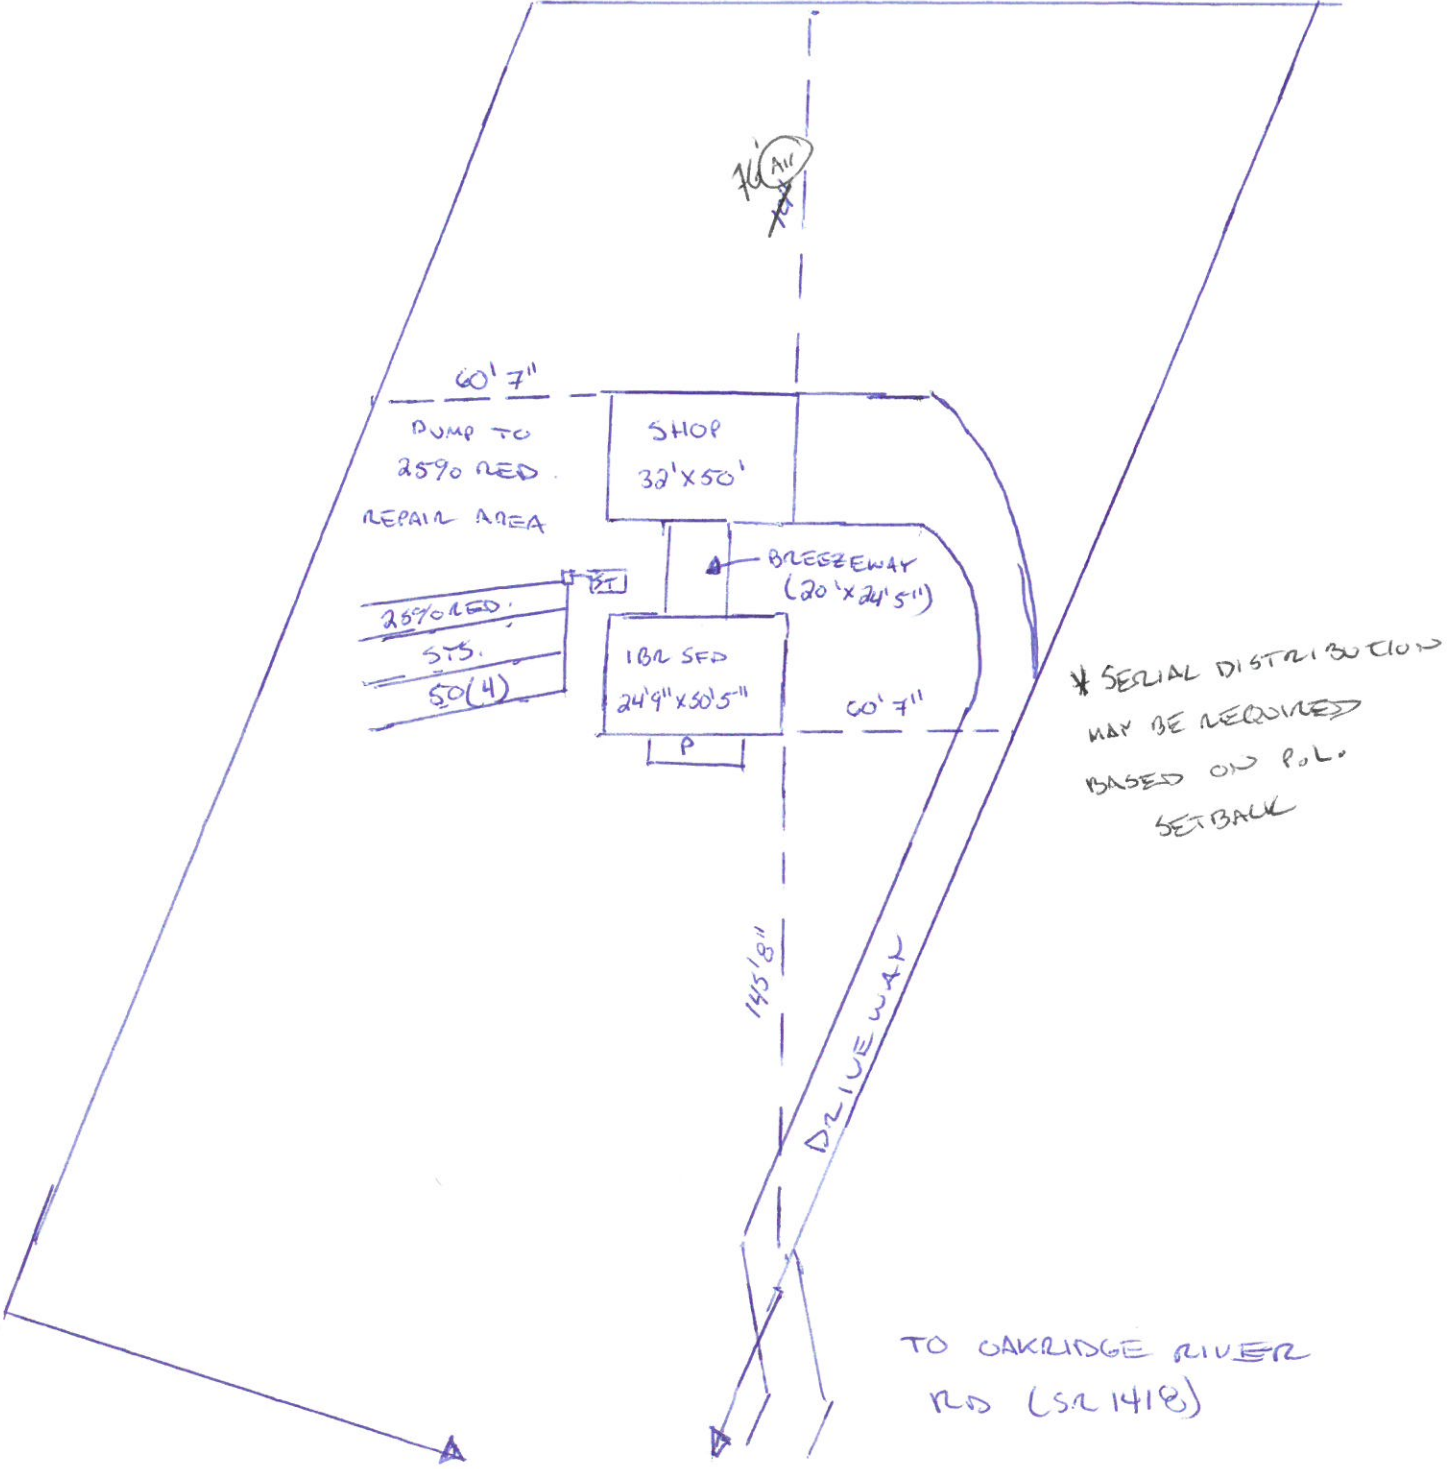 76'
AW
60'7"
PUMP TO
25% RED.
REPAIR AREA
SHOP
32'X50'
BREEZEWAY
(20'X24'5")
ST
25% RED.
STS.
50(4)
1BR SFD
24'9"X50'5"
P
60'7"
* SERIAL DISTRIBUTION
MAY BE REQUIRED
BASED ON P.L.
SETBACK
145'8"
DRIVEWAY
TO OAKRIDGE RIVER
RD (SR 1418)